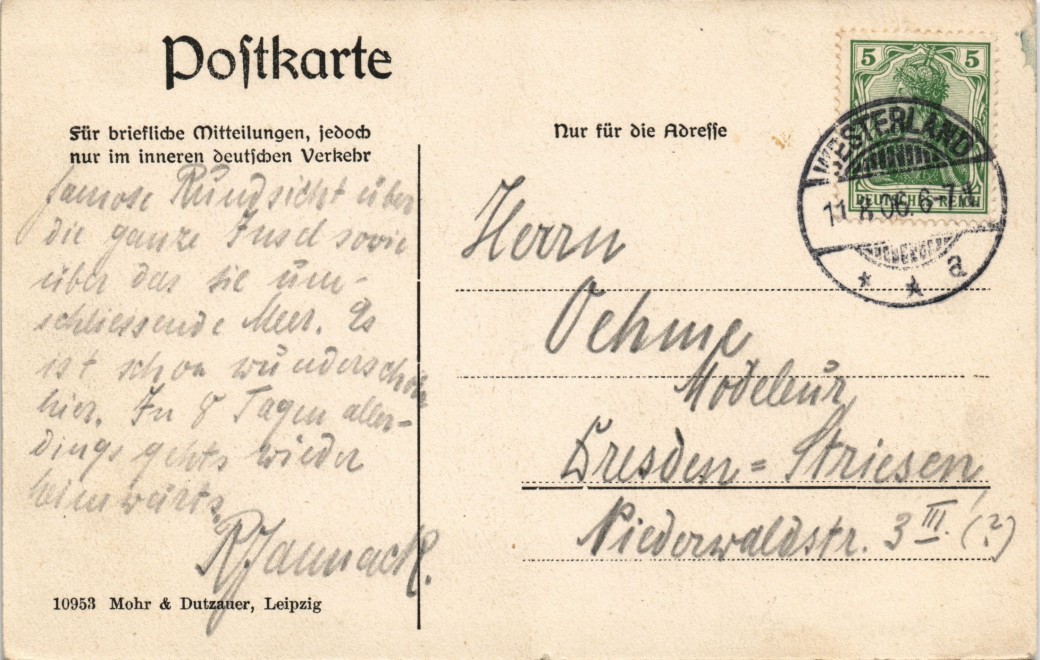 Poſtkarte
Für briefliche Mitteilungen, jedoch
nur im inneren deutſchen Verkehr
Nur für die Adreſſe
5 5
DEUTSCHES REICH
WESTERLAND
11.8.06. 6-7
* * a
famose Rundsicht über
die ganze Insel sowie
über das sie um-
schliessende Meer. Es
ist schon wunderschön
hier. In 8 Tagen aller-
dings gehts wieder
heimwärts.
Herrn
Oehme
Modeleur
Dresden = Striesen
Niederwaldstr. 3 III. (?)
10953 Mohr & Dutzauer, Leipzig